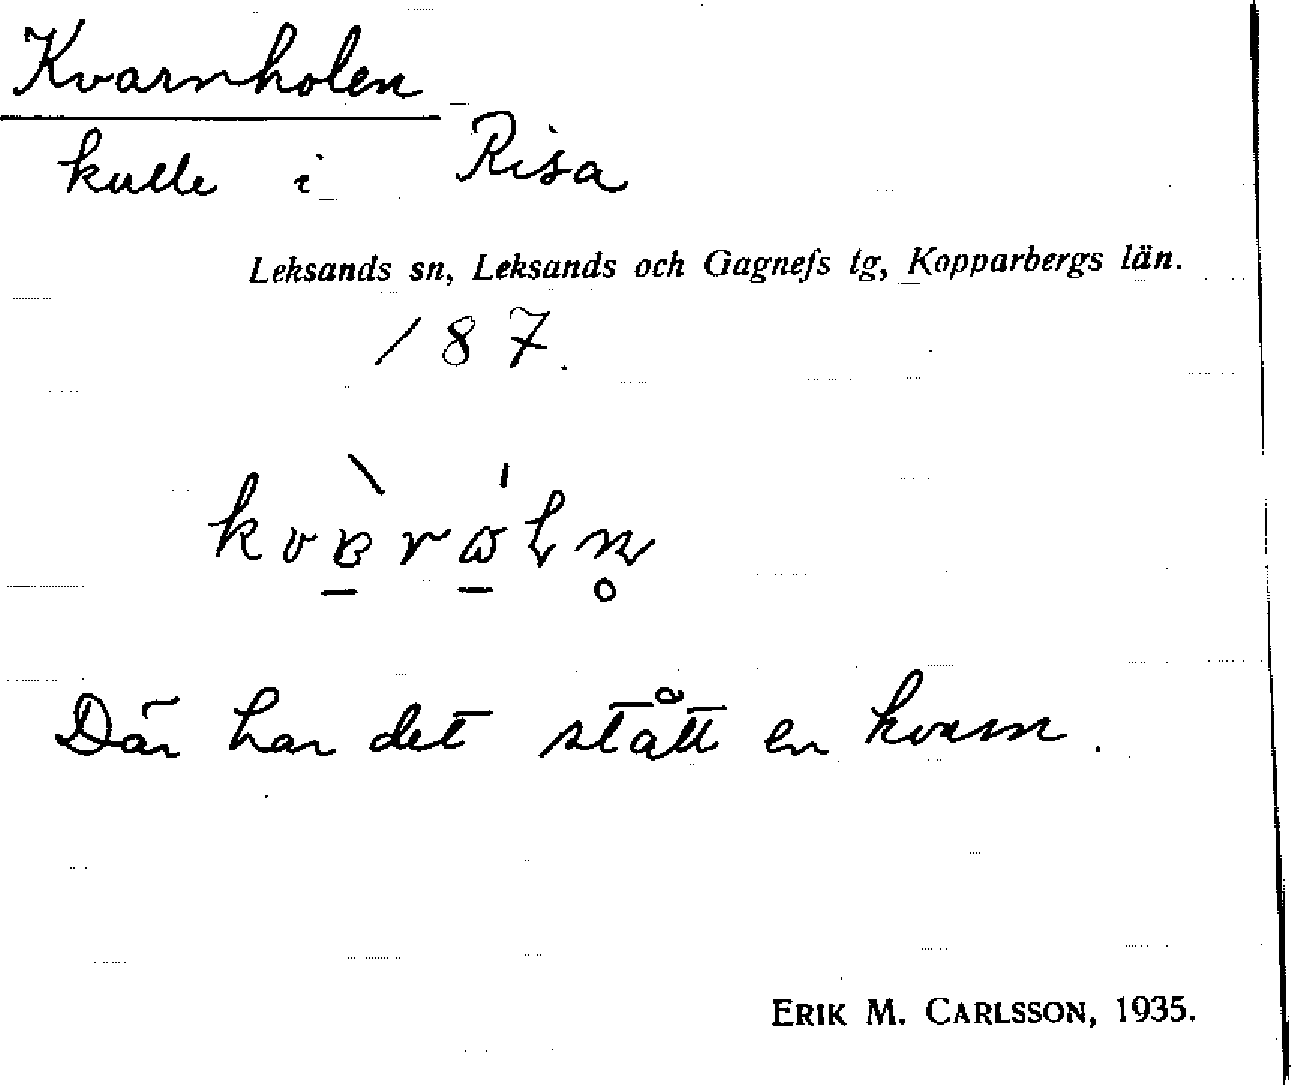 Kvarnholen
kulle i Risa
Leksands sn, Leksands och Gagnefs tg, Kopparbergs län.
187.
Där har det stått en kvarn.
ERIK M. CARLSSON, 1935.